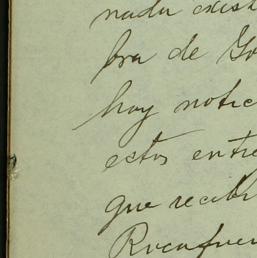 nada exist
bra de Go
hay notic
estos entre
que recibi
Rocafuer